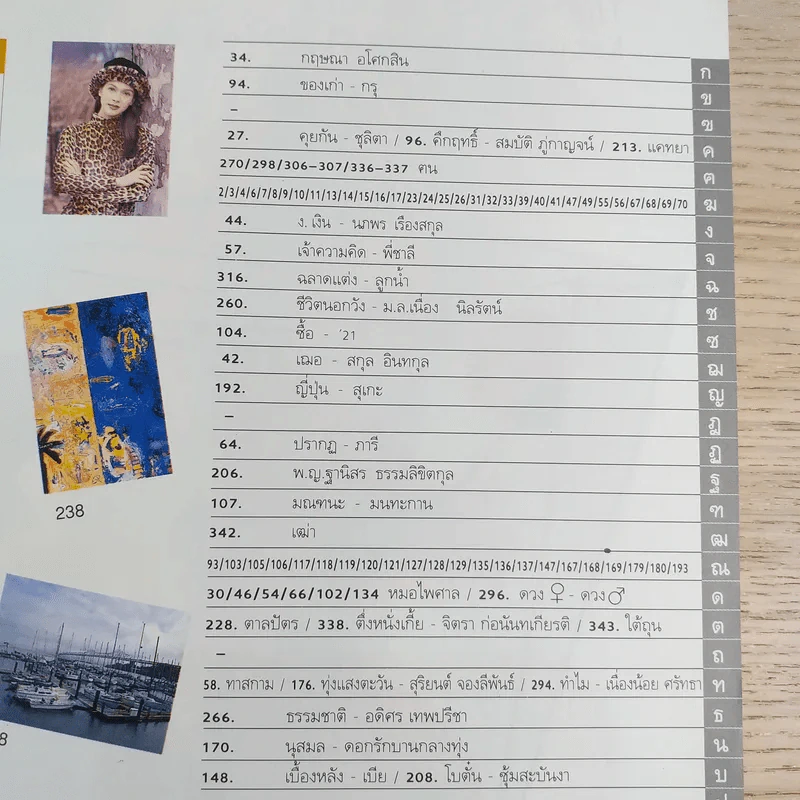 34. กฤษณา อโศกสิน ก
94. ของเก่า - กรุ ข
– ฃ
27. คุยกัน - ชุลิตา / 96. คึกฤทธิ์ - สมบัติ ภู่กาญจน์ / 213. แคทยา ค
270/298/306–307/336–337 ฅน ฅ
2/3/4/6/7/8/9/10/11/13/14/15/16/17/23/24/25/26/31/32/33/39/40/41/47/49/55/56/67/68/69/70 ฆ
44. ง. เงิน - นภพร เรืองสกุล ง
57. เจ้าความคิด - พี่ชาลี จ
316. ฉลาดแต่ง - ลูกน้ำ ฉ
260. ชีวิตนอกวัง - ม.ล.เนื่อง นิลรัตน์ ช
104. ซื้อ - '21 ซ
42. เฌอ - สกุล อินทกุล ฌ
192. ญี่ปุ่น - สุเกะ ญ
– ฎ
64. ปรากฏ - ภารี ฏ
206. พ.ญ.ฐานิสร ธรรมลิขิตกุล ฐ
107. มณฑนะ - มนทะกาน ฑ
342. เฒ่า ฒ
93/103/105/106/117/118/119/120/121/127/128/129/135/136/147/167/168/169/179/180/193 ณ
30/46/54/66/102/134 หมอไพศาล / 296. ดวง ♀ - ดวง ♂ ด
228. ตาลปัตร / 338. ตึ่งหนั่งเกี้ย - จิตรา ก่อนันทเกียรติ / 343. ใต้ถุน ต
– ถ
58. ทาสกาม / 176. ทุ่งแสงตะวัน - สุริยนต์ จองลีพันธ์ / 294. ทำไม - เนื่องน้อย ศรัทธา ท
266. ธรรมชาติ - อดิศร เทพปรีชา ธ
170. นุสมล - ดอกรักบานกลางทุ่ง น
148. เบื้องหลัง - เบีย / 208. โบตั๋น - ซุ้มสะบันงา บ
238
8